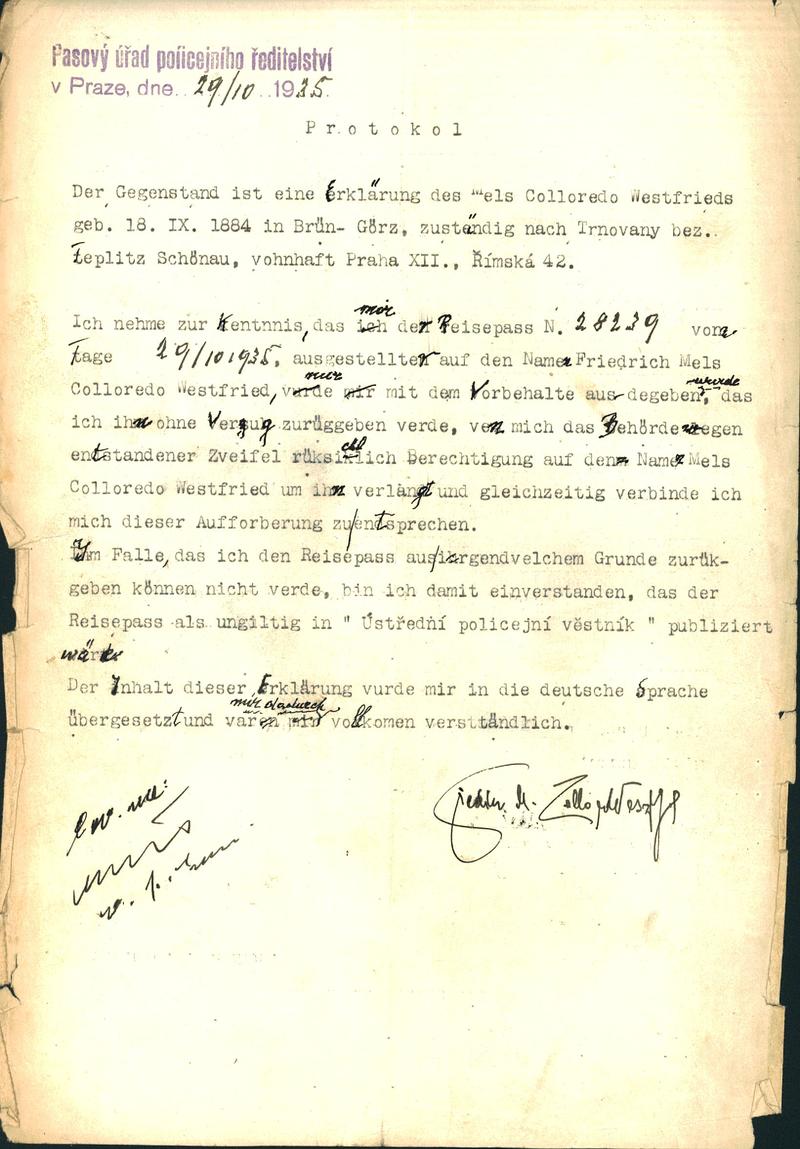 Pasový úřad policejního ředitelství
v Praze, dne 29/10 1935.
Protokol
Der Gegenstand ist eine Erklärung des Mels Colloredo Westfrieds
geb. 18. IX. 1884 in Brün- Görz, zuständig nach Trnovany bez..
Teplitz Schönau, vohnhaft Praha XII., Římská 42.
mir
Ich nehme zur Kentnnis, das ich der Reisepass N. 28239 vom
Tage 29/10 1935, ausgestellter auf den Namen Friedrich Mels
nur wurde
Colloredo Westfried, vurde mir mit dem Vorbehalte aus degeben, das
ich ihn ohne Verzug zurüggeben verde, ven mich das Behörde wegen
entstandener Zveifel rüksichtlich Berechtigung auf den Namen Mels
Colloredo Westfried um ihn verlangt und gleichzeitig verbinde ich
mich dieser Aufforberung zu/entsprechen.
Im Falle, das ich den Reisepass aus/irgendvelchem Grunde zurük-
geben können nicht verde, bin ich damit einverstanden, das der
Reisepass als ungiltig in " Ústřední policejní věstník " publiziert
wäre
Der Inhalt dieser Erklärung vurde mir in die deutsche Sprache
mir dadurch
übergesetzt und varen mir vollkomen versttändlich.